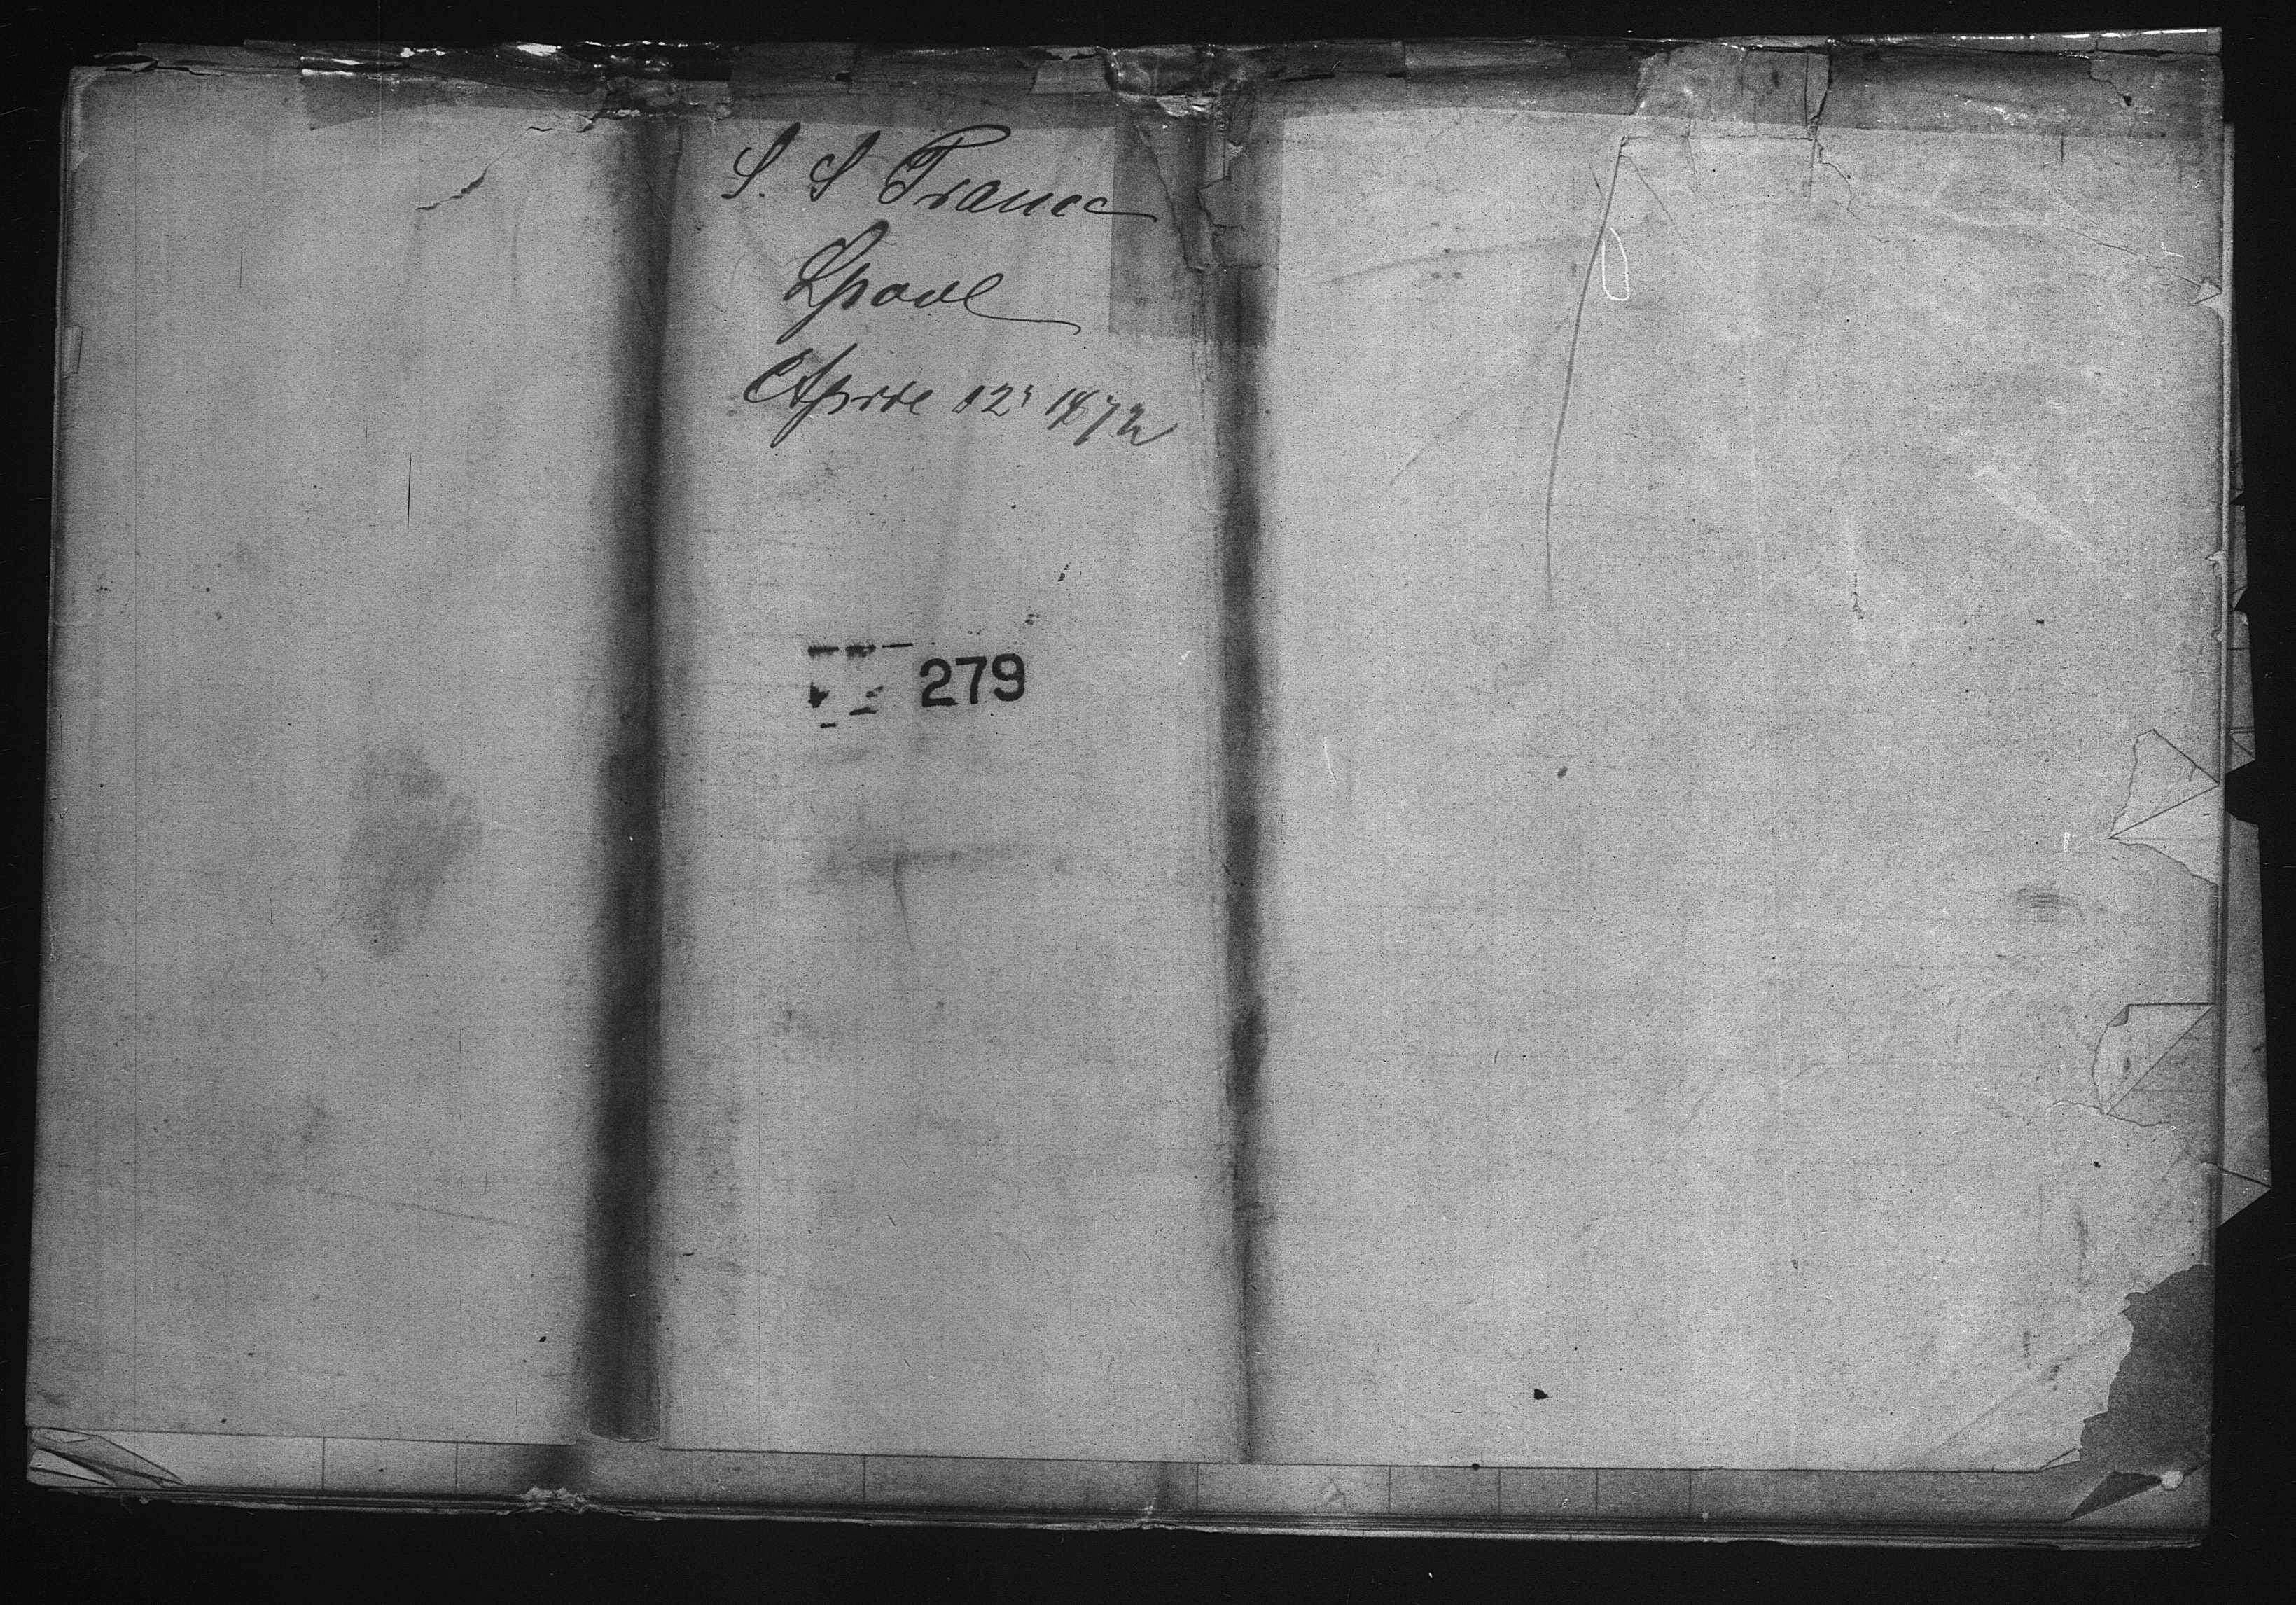 S. S France
Lpool
April 12" 1872
279